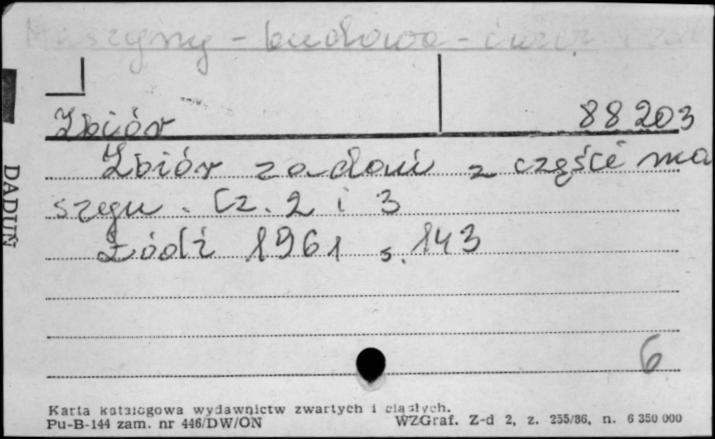 Maszyny - budowa - ćwicz. i zad.
Zbiór 88203
Zbiór zadań z części ma
szyn. Cz. 2 i 3
Łódź 1961 s. 143
6
DADUŃ
Karta katalogowa wydawnictw zwartych i ciągłych.
Pu-B-144 zam. nr 446/DW/ON WZGraf. Z-d 2, z. 255/86, n. 6 350 000